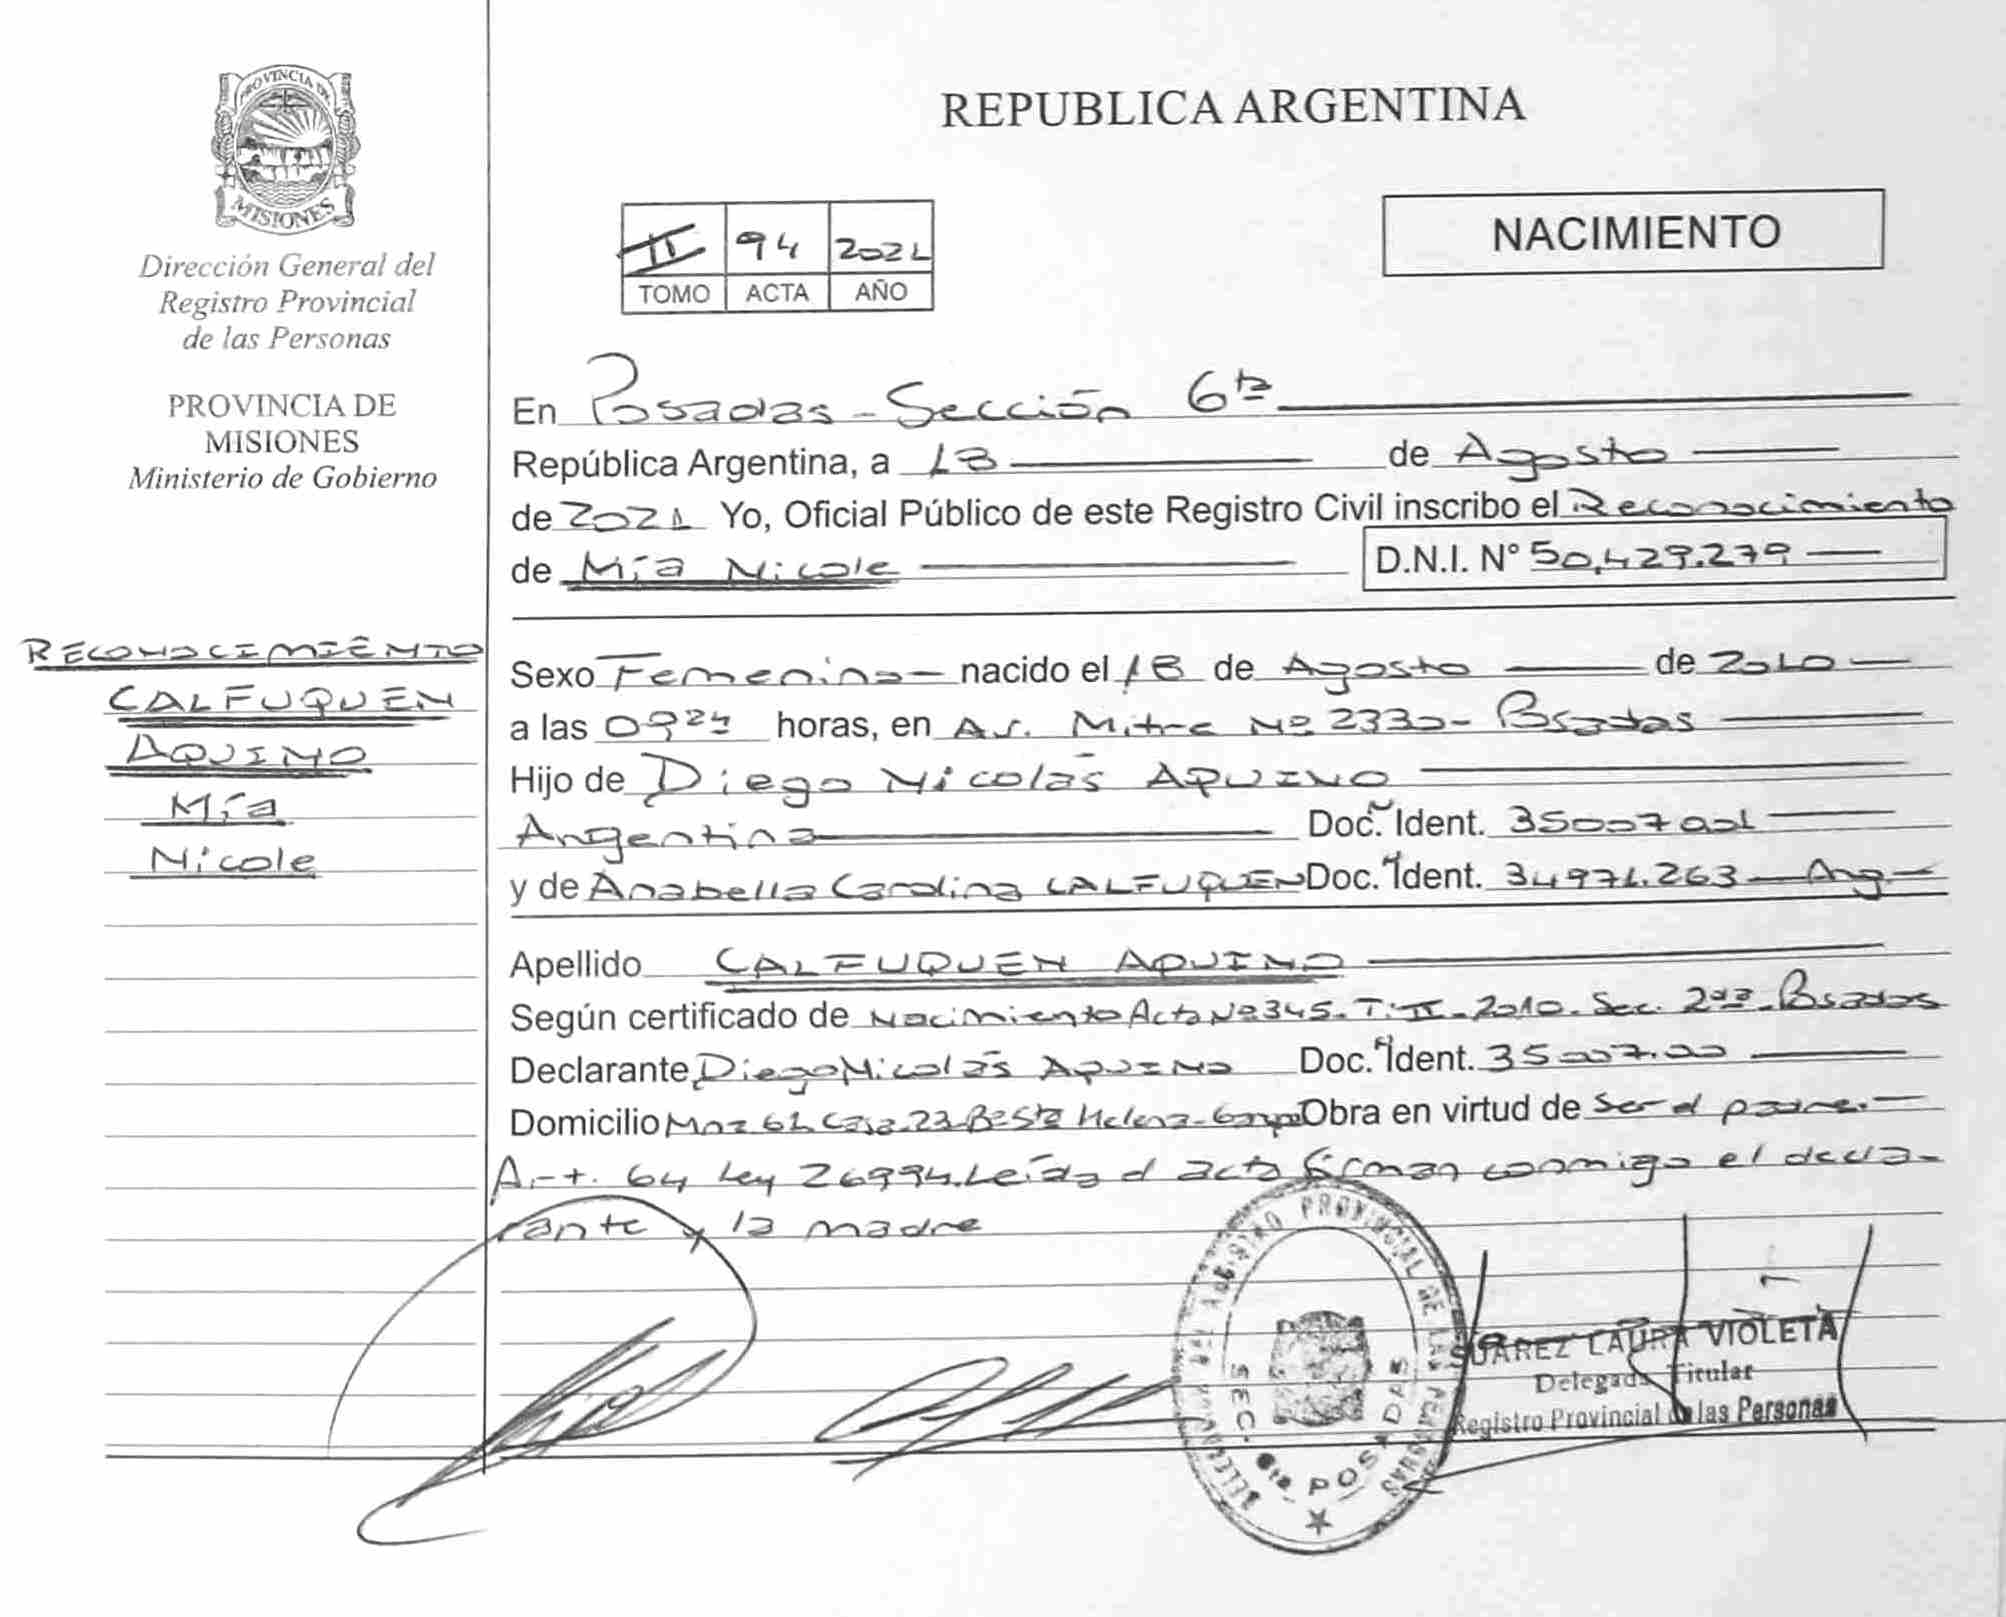 PROVINCIA DE
MISIONES
Dirección General del
Registro Provincial
de las Personas
PROVINCIA DE
MISIONES
Ministerio de Gobierno
RECONOCIMIENTO
CALFUQUEN
AQUINO
Mía
Nicole
REPUBLICA ARGENTINA
NACIMIENTO
II 94 2021
TOMO ACTA AÑO
En Posadas - Sección 6ta
República Argentina, a 18 de Agosto
de 2021 Yo, Oficial Público de este Registro Civil inscribo el Reconocimiento
de Mía Nicole D.N.I. N° 50.429.279
Sexo Femenino nacido el 18 de Agosto de 2010
a las 09 24 horas, en Av. Mitre Nº 2330 - Posadas
Hijo de Diego Nicolás AQUINO
Argentina Doc. Ident. 35007001
y de Anabella Carolina CALFUQUEN Doc. Ident. 34971.263 Arg
Apellido CALFUQUEN AQUINO
Según certificado de Nacimiento Acta Nº 345. T: II - 2010. Sec. 2da - Posadas
Declarante Diego Nicolás AQUINO Doc. Ident. 35007.00
Domicilio Casa 23 Bº Sta Helena Obra en virtud de ser el padre.
Art. 64 Ley 26994. Leída el acta firman conmigo el decla-
rante y la madre
DELEGACION DEL REGISTRO PROVINCIAL DE LAS PERSONAS
SEC. 6ta POSADAS
SUAREZ LAURA VIOLETA
Delegada Titular
Registro Provincial de las Personas